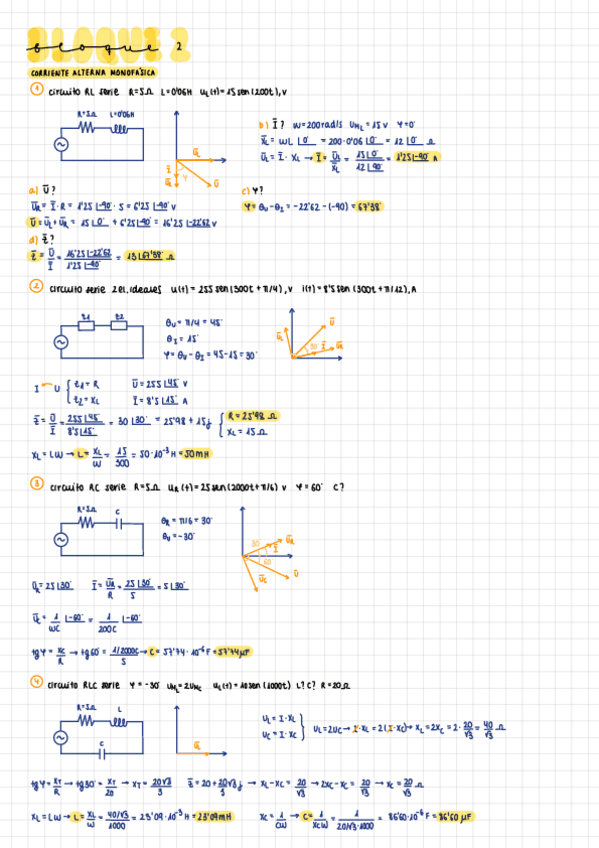 bloque 2
CORRIENTE ALTERNA MONOFÁSICA
1 circuito RL serie R=5Ω L=0'06H u_L(t)=15sen(200t),V
R=5Ω L=0'06H
b) Ī? W=200rad/s U_ML=15V Ψ=0°
X̄_L = WL ∠0° = 200·0'06 ∠0° = 12 ∠0° Ω
Ū_L = Ī·X_L → Ī = Ū_L/X̄_L = 15∠0°/12∠90° = 1'25∠-90° A
a) Ū?
Ū_R = Ī·R = 1'25∠-90°·5 = 6'25∠-90° V
Ū = Ū_L + Ū_R = 15∠0° + 6'25∠-90° = 16'25∠-22'62 V
c) Ψ?
Ψ = θ_U - θ_I = -22'62 - (-90) = 67'38°
d) Z̄?
Z̄ = Ū/Ī = 16'25∠-22'62/1'25∠-90° = 13∠67'38° Ω
2 circuito serie 2 el. ideales u(t) = 255 sen(300t + π/4), V i(t) = 8'5 sen(300t + π/12), A
z1 z2
θ_U = π/4 = 45°
θ_I = 15°
Ψ = θ_U - θ_I = 45-15 = 30°
I U { z1 = R z2 = X_L
Ū = 255∠45° V
Ī = 8'5∠15° A
Z̄ = Ū/Ī = 255∠45°/8'5∠15° = 30∠30° = 25'98 + 15j { R = 25'98 Ω X_L = 15 Ω
X_L = LW → L = X_L/W = 15/300 = 50·10⁻³ H = 50mH
3 circuito RC serie R=5Ω u_R(t) = 25sen(2000t+π/6) V Ψ=60° C?
R=5Ω C
θ_R = π/6 = 30°
θ_U = -30°
Ū_R = 25∠30° Ī = Ū_R/R = 25∠30°/5 = 5∠30°
Ū_C = 1/WC ∠-60° = 1/200C ∠-60°
tgΨ = X_C/R → tg60 = 1/2000C/5 → C = 57'74·10⁻⁶ F = 57'74μF
4 circuito RLC serie Ψ = -30° U_ML = 2U_MC u_L(t) = 10sen(1000t) L? C? R=20Ω
R=5Ω L
C
U_L = I·X_L
U_C = I·X_C
U_L = 2U_C → I·X_L = 2(I·X_C) → X_L = 2X_C = 2·20/√3 = 40/√3 Ω
tgΨ = X_T/R → tg30° = X_T/20 → X_T = 20√3/3 Z̄ = 20 + 20√3/3 j → X_L - X_C = 20/√3 → 2X_C - X_C = 20/√3 → X_C = 20/√3 Ω
X_L = LW → L = X_L/W = 40/√3/1000 = 23'09·10⁻³ H = 23'09mH
X_C = 1/CW → C = 1/X_CW = 1/20/√3·1000 = 86'60·10⁻⁶ F = 86'60 μF